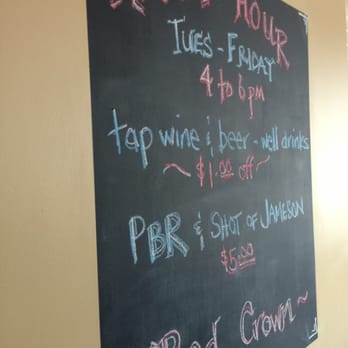 HOUR
TUES - FRIDAY
4 to 6 pm
tap wine & beer - well drinks
~ $1.00 off ~
PBR & SHOT OF JAMESON
$5.00
Red Crown ~